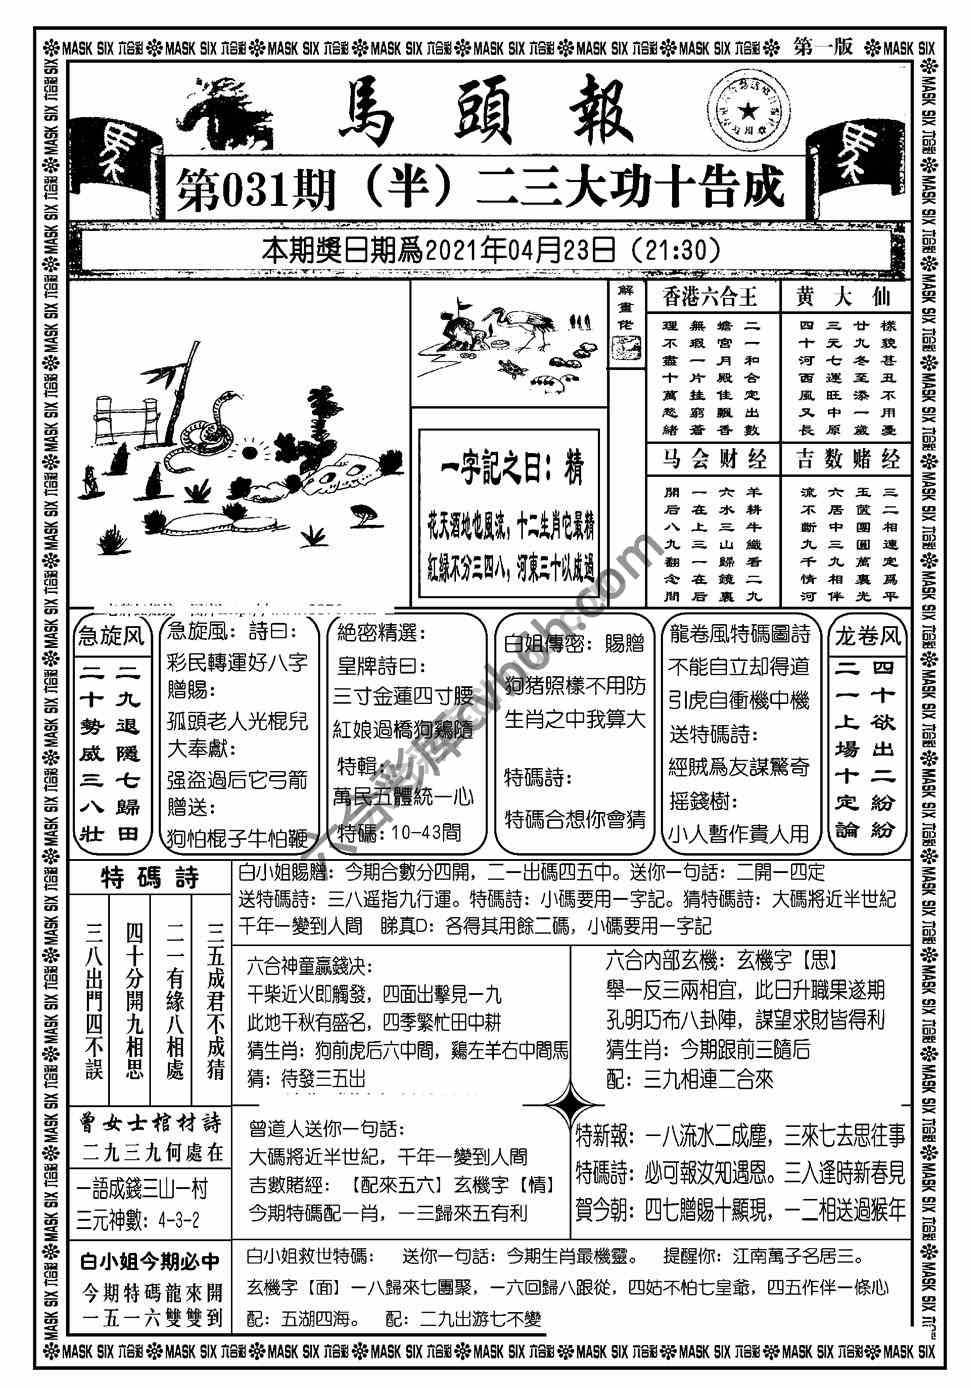 MASK SIX 六合彩 MASK SIX 六合彩 MASK SIX 六合彩 MASK SIX 六合彩 MASK SIX 六合彩 MASK SIX 六合彩 MASK SIX 六合彩 第一版 MASK SIX
馬頭報
第031期（半）二三大功十告成
本期獎日期爲2021年04月23日（21:30）
解畫佬
一字記之日：精
花天酒地也風流，十二生肖它最精
紅緑不分三四八，河東三十以成過
香港六合王
二一和合定出數
蟾宮月殿佳飄香
無瑕一片挂窮蒼
理不盡十萬愁緒
黄大仙
樣貌甚丑不用憂
廿九冬至添一歲
三元七運旺中原
四十河西風又長
马会财经
羊耕牛織看二九
六水三山歸鏡裏
一在上三一在后
開后八九翻念間
吉数赌经
三二相連定爲平
玉茵團圓萬裏光
六居中三九相伴
流不斷九千情河
急旋风
二九退隱七歸田
二十勢威三八壯
急旋風：詩曰：
彩民轉運好八字
贈賜：
孤頭老人光棍兒
大奉獻：
强盗過后它弓箭
贈送：
狗怕棍子牛怕鞭
絶密精選：
皇牌詩曰：
三寸金蓮四寸腰
紅娘過橋狗鷄隨
特輯：
萬民五體統一心
特碼：10-43間
白姐傳密：賜贈
狗猪照樣不用防
生肖之中我算大
特碼詩：
特碼合想你會猜
龍卷風特碼圖詩
不能自立却得道
引虎自衝機中機
送特碼詩：
經賊爲友謀驚奇
摇錢樹：
小人暫作貴人用
龙卷风
四十欲出二紛紛
二一上場十定論
特碼詩
三五成君不成猜
二一一有緣八相處
四十分開九相思
三八出門四不誤
白小姐賜贈：今期合數分四開，二一出碼四五中。送你一句話：二開一四定
送特碼詩：三八遥指九行運。特碼詩：小碼要用一字記。猜特碼詩：大碼將近半世紀
千年一變到人間　睇真D：各得其用餘二碼，小碼要用一字記
六合神童贏錢决：
干柴近火即觸發，四面出擊見一九
此地千秋有盛名，四季繁忙田中耕
猜生肖：狗前虎后六中間，鷄左羊右中間馬
猜：待發三五出
六合内部玄機：玄機字【思】
舉一反三兩相宜，此日升職果遂期
孔明巧布八卦陣，謀望求財皆得利
猜生肖：今期跟前三隨后
配：三九相連二合來
曾女士棺材詩
二九三九何處在
一語成錢三山一村
三元神數：4-3-2
曾道人送你一句話：
大碼將近半世紀，千年一變到人間
吉數賭經：【配來五六】玄機字【情】
今期特碼配一肖，一三歸來五有利
特新報：一八流水二成塵，三來七去思往事
特碼詩：必可報汝知遇恩。三入逢時新春見
賀今朝：四七贈賜十顯現，一二相送過猴年
白小姐今期必中
今期特碼龍來開
一五一六雙雙到
白小姐救世特碼：　送你一句話：今期生肖最機靈。　提醒你：江南萬子名居三。
玄機字【面】一八歸來七團聚，一六回歸八跟從，四姑不怕七皇爺，四五作伴一條心
配：五湖四海。　配：二九出游七不變
六合彩库cvboh.com
MASK SIX 六合彩 MASK SIX 六合彩 MASK SIX 六合彩 MASK SIX 六合彩 MASK SIX 六合彩 MASK SIX 六合彩 MASK SIX 六合彩 MASK SIX 六合彩 MASK SIX